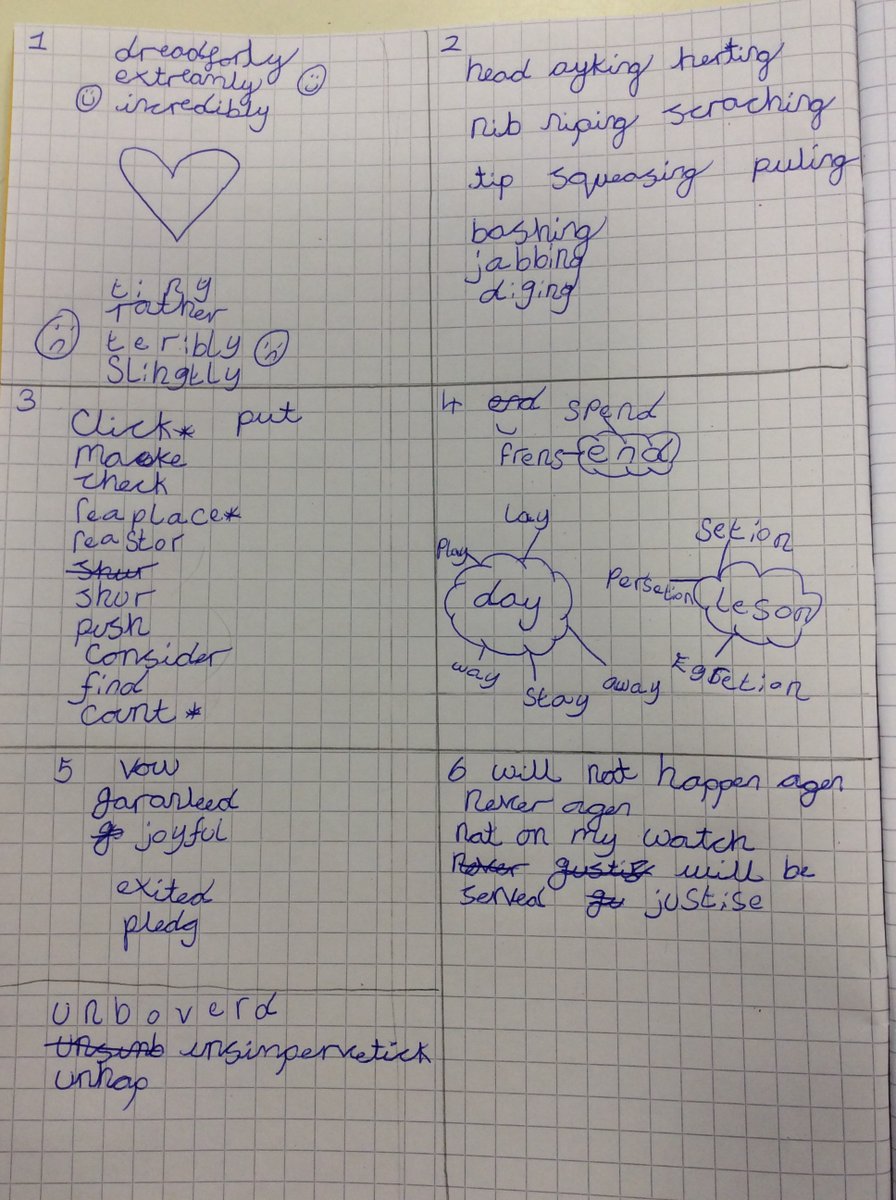 1
dreadforly
extreamly
incredibly
tiny
rather
teribly
Slingtly
2
head ayking herting
rib riping scraching
tip squeasing puling
bashing
jabbing
diging
3
Click* put
make
check
reaplace*
reastor
shur
shur
push
consider
find
count *
4 end spend
frens end
lay
play
day
way
stay
away
Setion
Persetion
leson
Egsetion
5 vow
garanteed
joyful
exited
pledg
6 will not happen agen
never agen
not on my watch
never gustis will be
served gu justise
unboverd
unsimb unsimpervetick
unhap